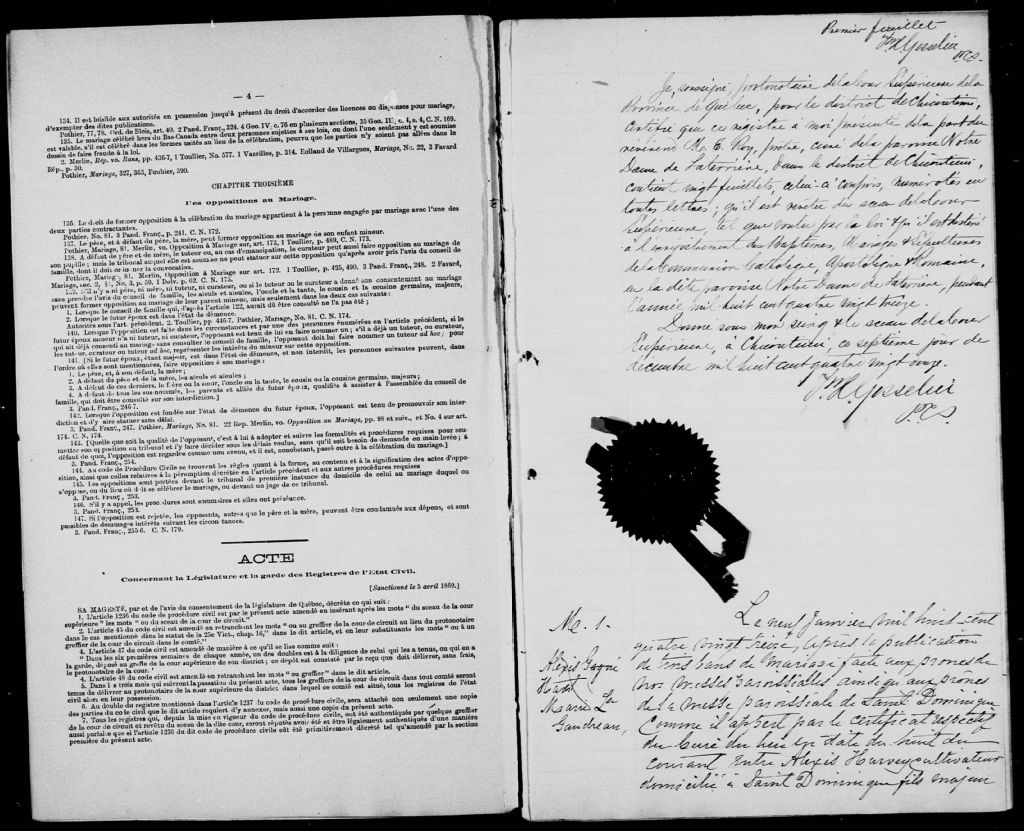 — 4 —
134. Il est loisible aux autorités en possession jusqu'à présent du droit d'accorder des licences ou dispenses pour mariage,
d'exempter des dites publications.
Pothier, 77, 78. Ord. de Blois, art. 40. 2 Pand. Franç., 324. 4 Geo. IV, c. 76 en plusieurs sections, 35 Geo. III, c. 4, s. 4, C. N. 169.
135. Le mariage célébré hors du Bas-Canada entre deux personnes sujettes à ses lois, ou dont l'une seulement y est soumise
est valable, s'il est célébré dans les formes usités au lieu de la célébration, pourvu que les parties n'y soient pas allées dans le
dessin de faire fraude à la loi.
2. Merlin, Rép. vo. Bans, pp. 436-7, 1 Toullier, No. 577. 1 Vazeilles, p. 314. Rolland de Villargues, Mariage, No. 22, 3 Favard
Rép., p. 30.
Pothier, Mariage, 327, 363, Pouhier, 390.
CHAPITRE TROISIÈME
Des oppositions au Mariage.
136. Le droit de former opposition à la célébration du mariage appartient à la personne engagée par mariage avec l'une des
deux parties contractantes.
Pothier, No. 81. 3 Pand. Franç., p. 241. C. N. 172.
137. Le père, et à défaut du père, la mère, peut former opposition au mariage de son enfant mineur.
Pothier, Mariage, 81. Merlin, vo. Opposition à Mariage sur art. 173, 1 Toullier, p. 489, C. N. 173.
138. A défaut de père et de mère, le tuteur ou, au cas d'émancipation, le curateur peut aussi faire opposition au mariage de
son pupille; mais le tribunal auquel elle est soumise ne peut statuer sur cette opposition qu'après avoir pris l'avis du conseil de
famille, dont il doit ordonner la convocation.
Pothier, Mariage, 81. Merlin, Opposition à Mariage sur art. 172. 1 Toullier, p. 425, 490. 3 Pand. Franç., 248. 2 Favard,
Mariage, sec. 2, §1, No. 3, p. 59. 1 Delv. p. 62. C. N. 175.
139. S'il n'y a ni père, ni mère, ni tuteur, ni curateur, ou si le tuteur ou le curateur a donné son consentement au mariage
sans prendre l'avis du conseil de famille, les aïeuls et aïeules, l'oncle et la tante, le cousin et la cousine germains, majeurs,
peuvent former opposition au mariage de leur parent mineur, mais seulement dans les deux cas suivants:
1. Lorsque le conseil de famille qui, d'après l'article 122, aurait dû être consulté ne l'a pas été;
2. Lorsque le futur époux est dans l'état de démence.
Autorités sous l'art. précédent. 2 Toullier, pp 446-7. Pothier, Mariage, No. 81. C. N. 174.
140. Lorsque l'opposition est faite dans les circonstances et par une des personnes énumérées en l'article précédent, si le
futur époux mineur n'a ni tuteur, ni curateur, l'opposant est tenu de lui en faire nommer un; s'il a déjà un tuteur, ou curateur,
qui ait déjà consenti au mariage sans consulter le conseil de famille, l'opposant doit lui faire nommer un tuteur ad hoc; pour
les tuteur, curateur ou tuteur ad hoc, représenter les intérêts du mineur sur cette opposition.
141. [Si le futur époux, étant majeur, est dans l'état de démence, et non interdit, les personnes suivantes peuvent, dans
l'ordre où elles sont mentionnées, faire opposition à son mariage:
1. Le père, et, à son défaut, la mère;
2. A défaut du père et de la mère, les aïeuls et aïeules;
3. A défaut de ces derniers, le frère ou la sœur, l'oncle ou la tante, le cousin ou la cousine germains, majeurs;
4. A défaut de tous les sus nommés, les parents et alliés du futur époux, qualifiés à assister à l'Assemblée du conseil de
famille, qui doit être consulté sur son interdiction.]
3. Pand. Franç., 246-7.
142. Lorsque l'opposition est fondée sur l'état de démence du futur époux, l'opposant est tenu de promouvoir son inter-
diction et d'y faire statuer sans délai.
3. Pand. Franç., 247. Pothier, Mariage, No. 81. 22 Rep. Merlin, vo. Opposition au Mariage, pp. 98 et suiv., et No. 4 sur art.
174. C. N. 174.
143. [Quelle que soit la qualité de l'opposant, c'est à lui à adopter et suivre les formalités et procédures requises pour sou-
mettre son opposition au tribunal et l'y faire décider sous les délais voulus, sans qu'il soit besoin de demande en main-levée; à
défaut de quoi, l'opposition est regardée comme non avenu, et il est, nonobstant, passé outre à la célébration du mariage.]
3. Pand. Franç., 254.
144. Au code de Procédure Civile se trouvent les règles quant à la forme, au contenu et à la signification des actes d'oppo-
sition, ainsi que celles relatives à la péremption décrétée en l'article précédent et aux autres procédures requises
145. Les oppositions sont portées devant le tribunal de première instance du domicile de celui au mariage duquel on
s'oppose, ou du lieu où doit se célébrer le mariage, ou devant un juge de ce tribunal.
3. Pand. Franç., 253.
146. S'il y a appel, les procédures sont sommaires et elles ont préséance.
3. Pand. Franç., 253.
147. Si l'opposition est rejetée, les opposants, autres que le père et la mère, peuvent être condamnés aux dépens, et sont
passibles de dommages-intérêts suivant les circonstances.
3. Pand. Franç., 255-6. C. N. 179.
ACTE
Concernant la Législature et la garde des Registres de l'Etat Civil.
[Sanctionné le 5 avril 1869.]
SA MAGESTÉ, par et de l'avis du consentement de la législature de Québec, décrète ce qui suit:
1. L'article 1236 du code de procédure civil est par le présent acte amendé en insérant après les mots " du sceau de la cour
supérieure " les mots " ou du sceau de la cour de circuit."
2. L'article 45 du code civil est amendé en retranchant les mots " ou au greffier de la cour de circuit au lieu du protonotaire
dans le cas mentionné dans le statut de la 25e Vict., chap. 16," dans le dit article, et en leur substituants les mots " ou à un
greffier de la cour de circuit dans le comté."
4. L'article 47 du code civil est amendé de manière à ce qu'il se lise comme suit:
" Dans les six premières semaines de chaque année, un des doubles est à la diligence de celui qui les a tenus, ou qui en a
la garde, déposé au greffe de la cour supérieure de son district; ce dépôt est constaté par le reçu que doit délivrer, sans frais,
le protonotaire de la cour. "
4. L'article 48 du code civil est amendé en retranchant les mots " ou greffier " dans le dit article.
5. Dans les trois mois qui suivront la passation du présent acte, tous les greffiers de la cour de circuit dans tout comté seront
tenus de délivrer au protonotaire de la cour supérieure du district dans lequel ce comté est situé, tous les registres de l'état
civil alors en leur possession.
6. Au double du registre mentionné dans l'article 1237 du code de procédure civile, sera attaché non seulement une copie
des parties du code civil que le dit article requiert d'y annexer, mais aussi une copie du présent acte.
7. Tous les registres qui, depuis la mise en vigueur du code de procédure civile, ont été authentiqués par quelque greffier
de la cour de circuit et revêtu du sceau de la dite cour, seront réputés avoir été et être légalement authentiqués d'une manière
aussi parfaite que si l'article 1236 du dit code de procédure civile eût été primitivement décrété tel qu'amendé par la section
première du présent acte.
Premier feuillet
F. H. Gosselin
P.C.S.
Je, soussigné, protonotaire de la Cour Supérieure de la
Province de Québec, pour le district de Chicoutimi,
certifie que ce registre à moi présenté de la part du
révérend M. E. Roy, prêtre, curé de la paroisse Notre
Dame de Laterrière, dans le district de Chicoutimi,
contient vingt feuillets, celui-ci compris, numérotés en
toutes lettres; qu'il est revêtu du sceau de la Cour
Supérieure, tel que voulu par la loi & qu'il est destiné
à l'enregistrement des Baptêmes, Mariages & Sépultures
de la Communion Catholique, Apostolique & Romaine,
en la dite paroisse Notre Dame de Laterrière, pendant
l'année mil huit cent quatre vingt treize.
Donné sous mon seing & le sceau de la Cour
Supérieure, à Chicoutimi, ce septième jour de
décembre mil huit cent quatre vingt douze.
F. H. Gosselin
P.C.S.
M. 1.
Alexis
Harvey
Marie Lse
Gaudreau,
Le neuf Janvier mil huit-cent
quatre vingt treize, après la publication
de trois bans de mariage faite aux prônes de
nos Messes Paroissiales ainsi qu'aux prônes
de la messe paroissiale de Saint Dominique
comme il appert par le certificat respectif
du Curé du lieu en date du huit du
courant entre Alexis Harvey cultivateur
domicilié à Saint Dominique fils majeur